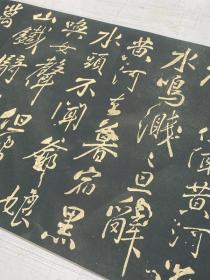 但聞黃河
水鳴濺〻旦辭
黃河去暮宿黑
水頭不聞爺娘
喚女聲
山鐵騎
但